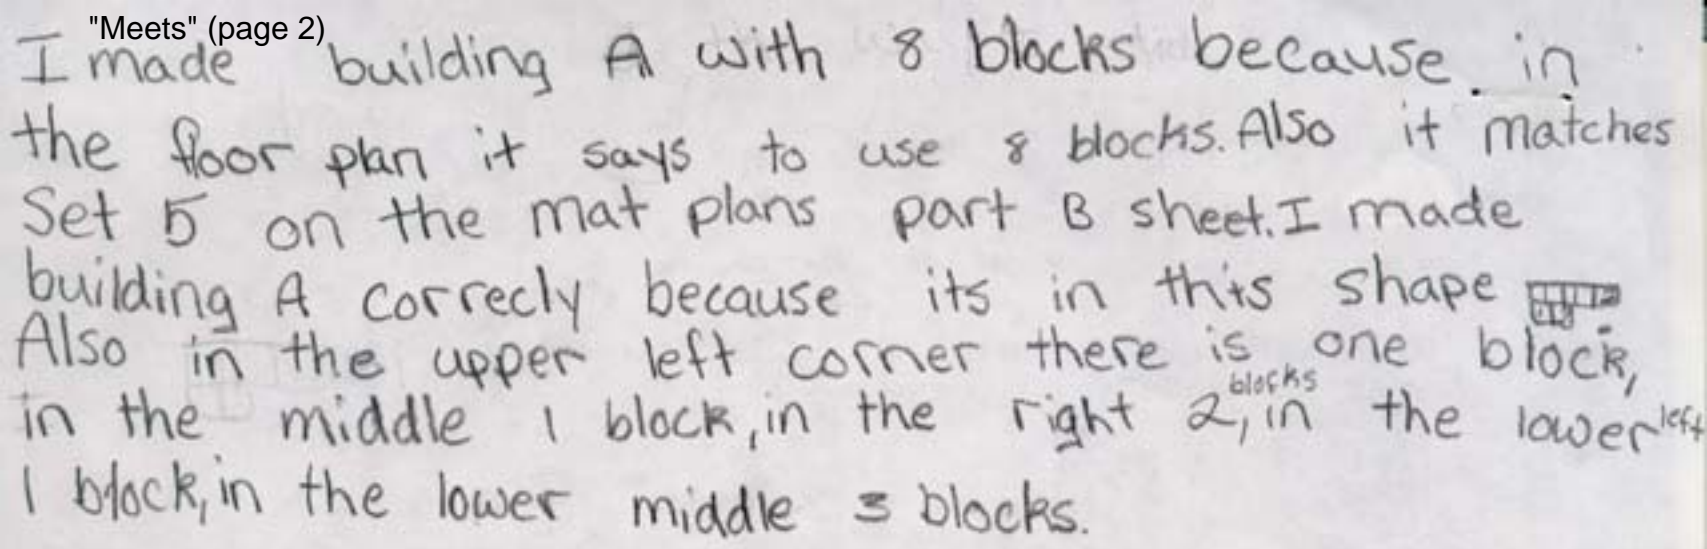 "Meets" (page 2)
I made building A with 8 blocks because in
the floor plan it says to use 8 blocks. Also it matches
Set 5 on the mat plans part B sheet. I made
building A correcly because its in this shape
Also in the upper left corner there is one block,
in the middle 1 block, in the right 2 blocks, in the lower left
1 block, in the lower middle 3 blocks.